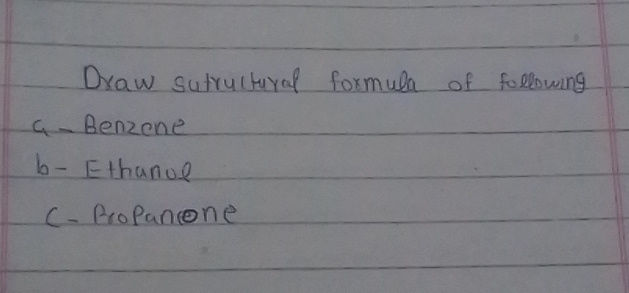 Draw sutructural formula of following
a - Benzene
b - Ethanol
c - Propanone